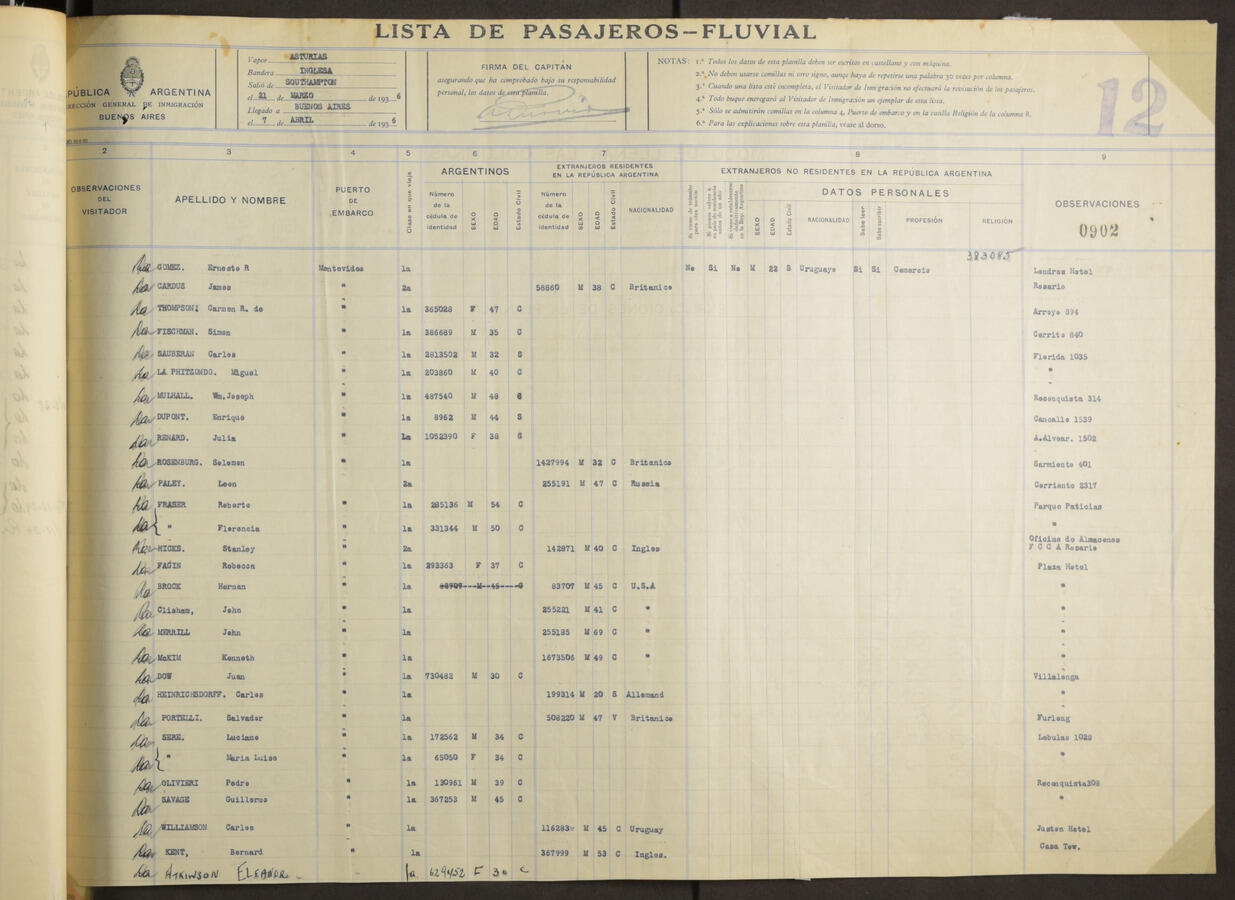 LISTA DE PASAJEROS–FLUVIAL
PÚBLICA ARGENTINA
RECCIÓN GENERAL DE INMIGRACIÓN
BUENOS AIRES
Vapor ASTURIAS
Bandera INGLESA
Salió de SOUTHAMPTON
el 21 de MARZO de 1936
Llegado a BUENOS AIRES
el 7 de ABRIL de 1936
FIRMA DEL CAPITÁN
asegurando que ha comprobado bajo su responsabilidad
personal, los datos de esta planilla.
NOTAS: 1.ª Todos los datos de esta planilla deben ser escritos en castellano y con máquina.
2.ª No deben usarse comillas ni otro signo, aunque haya de repetirse una palabra 30 veces por columna.
3.ª Cuando una lista esté incompleta, el Visitador de Inmigración no efectuará la revisación de los pasajeros.
4.ª Todo buque entregará al Visitador de Inmigración un ejemplar de esta lista.
5.ª Sólo se admitirán comillas en la columna 4, Puerto de embarco y en la casilla Religión de la columna 8.
6.ª Para las explicaciones sobre esta planilla, véase al dorso.
12
2 3 4 5 6 7 8 9
OBSERVACIONES DEL VISITADOR
APELLIDO Y NOMBRE
PUERTO DE EMBARCO
Clase en que viaja
ARGENTINOS
Número de la cédula de identidad SEXO EDAD Estado Civil
EXTRANJEROS RESIDENTES EN LA REPÚBLICA ARGENTINA
Número de la cédula de identidad SEXO EDAD Estado Civil NACIONALIDAD
EXTRANJEROS NO RESIDENTES EN LA REPÚBLICA ARGENTINA
DATOS PERSONALES
SEXO EDAD Estado Civil NACIONALIDAD Sabe leer Sabe escribir PROFESIÓN RELIGIÓN
OBSERVACIONES
0902
383085
GOMEZ. Ernesto R Montevideo 1a No Si No M 22 S Uruguayo Si Si Comercio Londres Hotel
CARDUS James " 2a 58860 M 38 C Britanico Rosario
THOMPSON; Carmen R. de " 1a 365028 F 47 C Arroyo 894
FISCHMAN. Simon " 1a 386689 M 35 C Cerrito 840
SAUBERAN Carlos " 1a 2813502 M 32 S Florida 1035
LA PHITZONDO. Miguel " 1a 203860 M 40 C "
MULHALL. Wm.Joseph " 1a 487540 M 48 C Reconquista 314
DUPONT. Enrique " 1a 8962 M 44 S Cancalle 1539
RENARD. Julia " 1a 1052390 F 38 S A.Alvear. 1502
ROSENBURG. Solomon " 1a 1427994 M 32 C Britanico Sarmiento 401
PALEY. Leon " 2a 255191 M 47 C Russia Corriente 2317
FRASER Roberto " 1a 285136 M 54 C Parque Paticias
" Florencia " 1a 331344 M 50 C "
HICKS. Stanley " 2a 142871 M 40 C Ingles Oficina de Almacenes
F C C A Rosario
FAGIN Rebecca " 1a 293363 F 37 C Plaza Hotel
BROCK Herman " 1a 83707 M 45 C U.S.A "
Clisham, John " 1a 255221 M 41 C " "
MERRILL John " 1a 255185 M 69 C " "
McKIM Kenneth " 1a 1673506 M 49 C " "
DOW Juan " 1a 730482 M 30 C Villalonga
HEINRICHSDORFF. Carlos 1a 199314 M 20 S Allemand "
PORTELLI. Salvador " 1a 508220 M 47 V Britanico Furlong
SERE. Luciano " 1a 172562 M 34 C Labulas 1028
" Maria Luisa " 1a 65050 F 34 C "
OLIVIERI Pedro " 1a 130961 M 39 C Reconquista308
SAVAGE Guillermo " 1a 367253 M 45 C "
WILLIAMSON Carlos " 1a 116283 M 45 C Uruguay Justen Hotel
KENT, Bernard " 1a 367999 M 53 C Ingles. Casa Tow.
ATKINSON ELEANOR 1a 629452 F 30 C